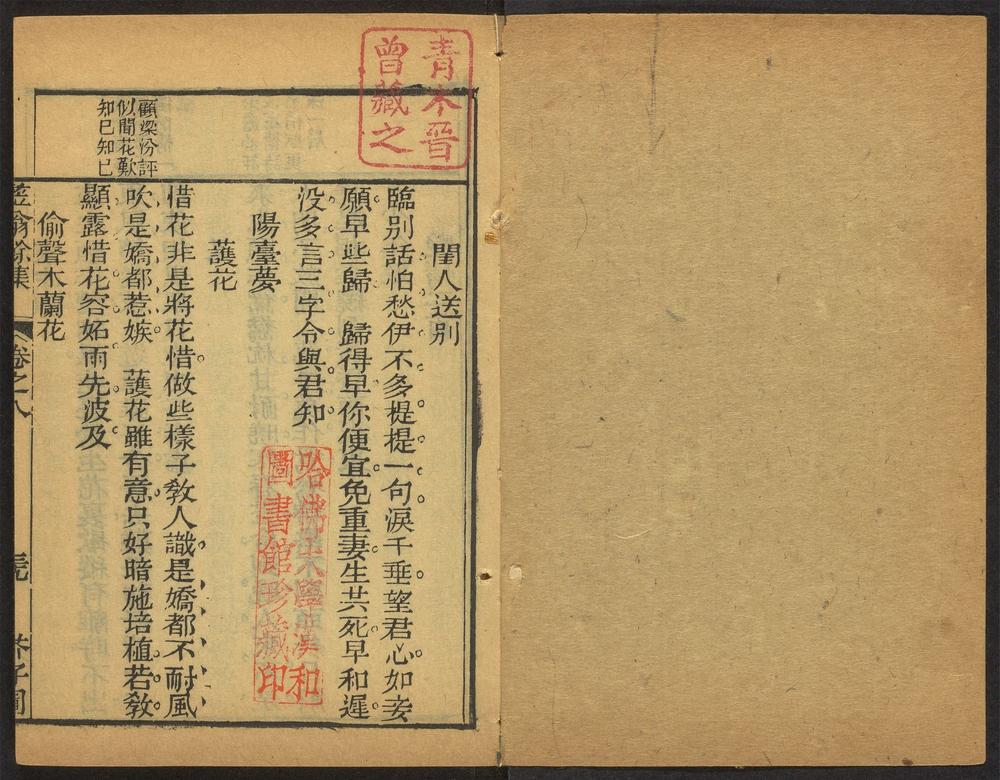 青木晉
曾藏之
顧梁汾評
似聞花歎
知巳知巳
閨人送別
臨別話怕愁伊不多提提一句淚千垂望君心如妾
願早些歸　歸得早你便宜免重妻生共死早和遲
没多言三字令與君知
陽臺夢
護花
惜花非是將花惜做些樣子敎人識是嬌都不耐風
吹是嬌都惹嫉　護花雖有意只好暗施培植若敎
顯露惜花容妬雨先波及
偷聲木蘭花
笠翁餘集
卷之八
芥子園
哈佛大學漢和
圖書館珍藏印